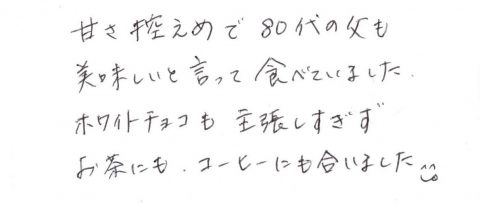 甘さ控えめで 80代の父も
美味しいと言って食べていました.
ホワイトチョコも 主張しすぎず
お茶にも.コーヒーにも合いました